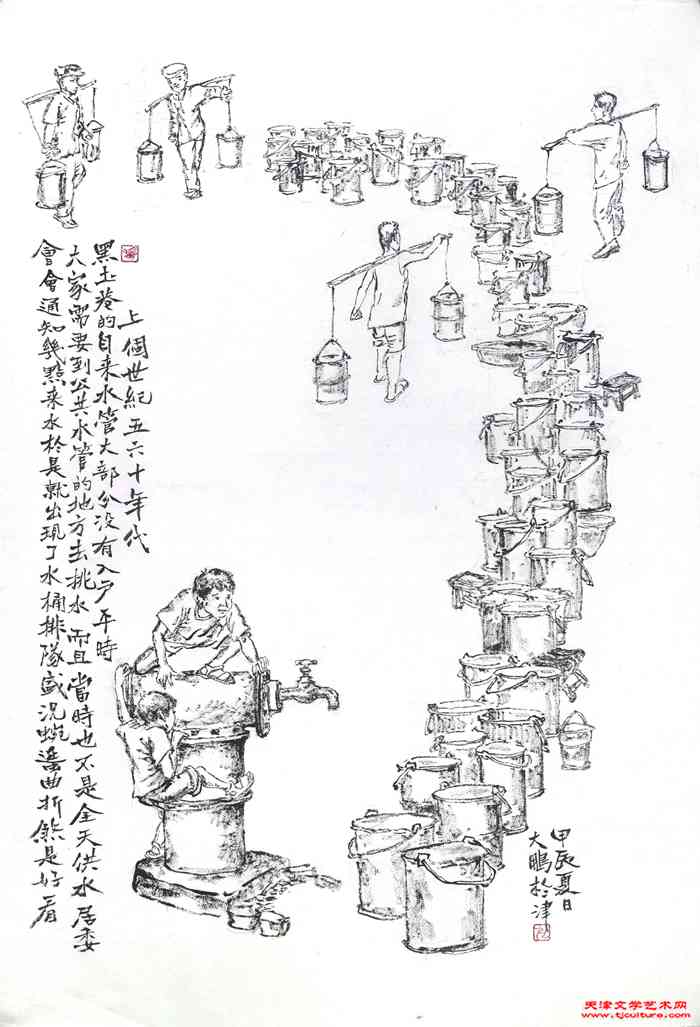 上個世紀五六十年代
黑土巷的自来水管大部分没有入户平時
大家需要到公共水管的地方去挑水而且當時也不是全天供水居委
會會通知幾點来水於是就出現了水桶排隊盛况蜿蜒曲折煞是好看
甲辰夏日
大鵬於津
天津文学艺术网
www.tjculture.com